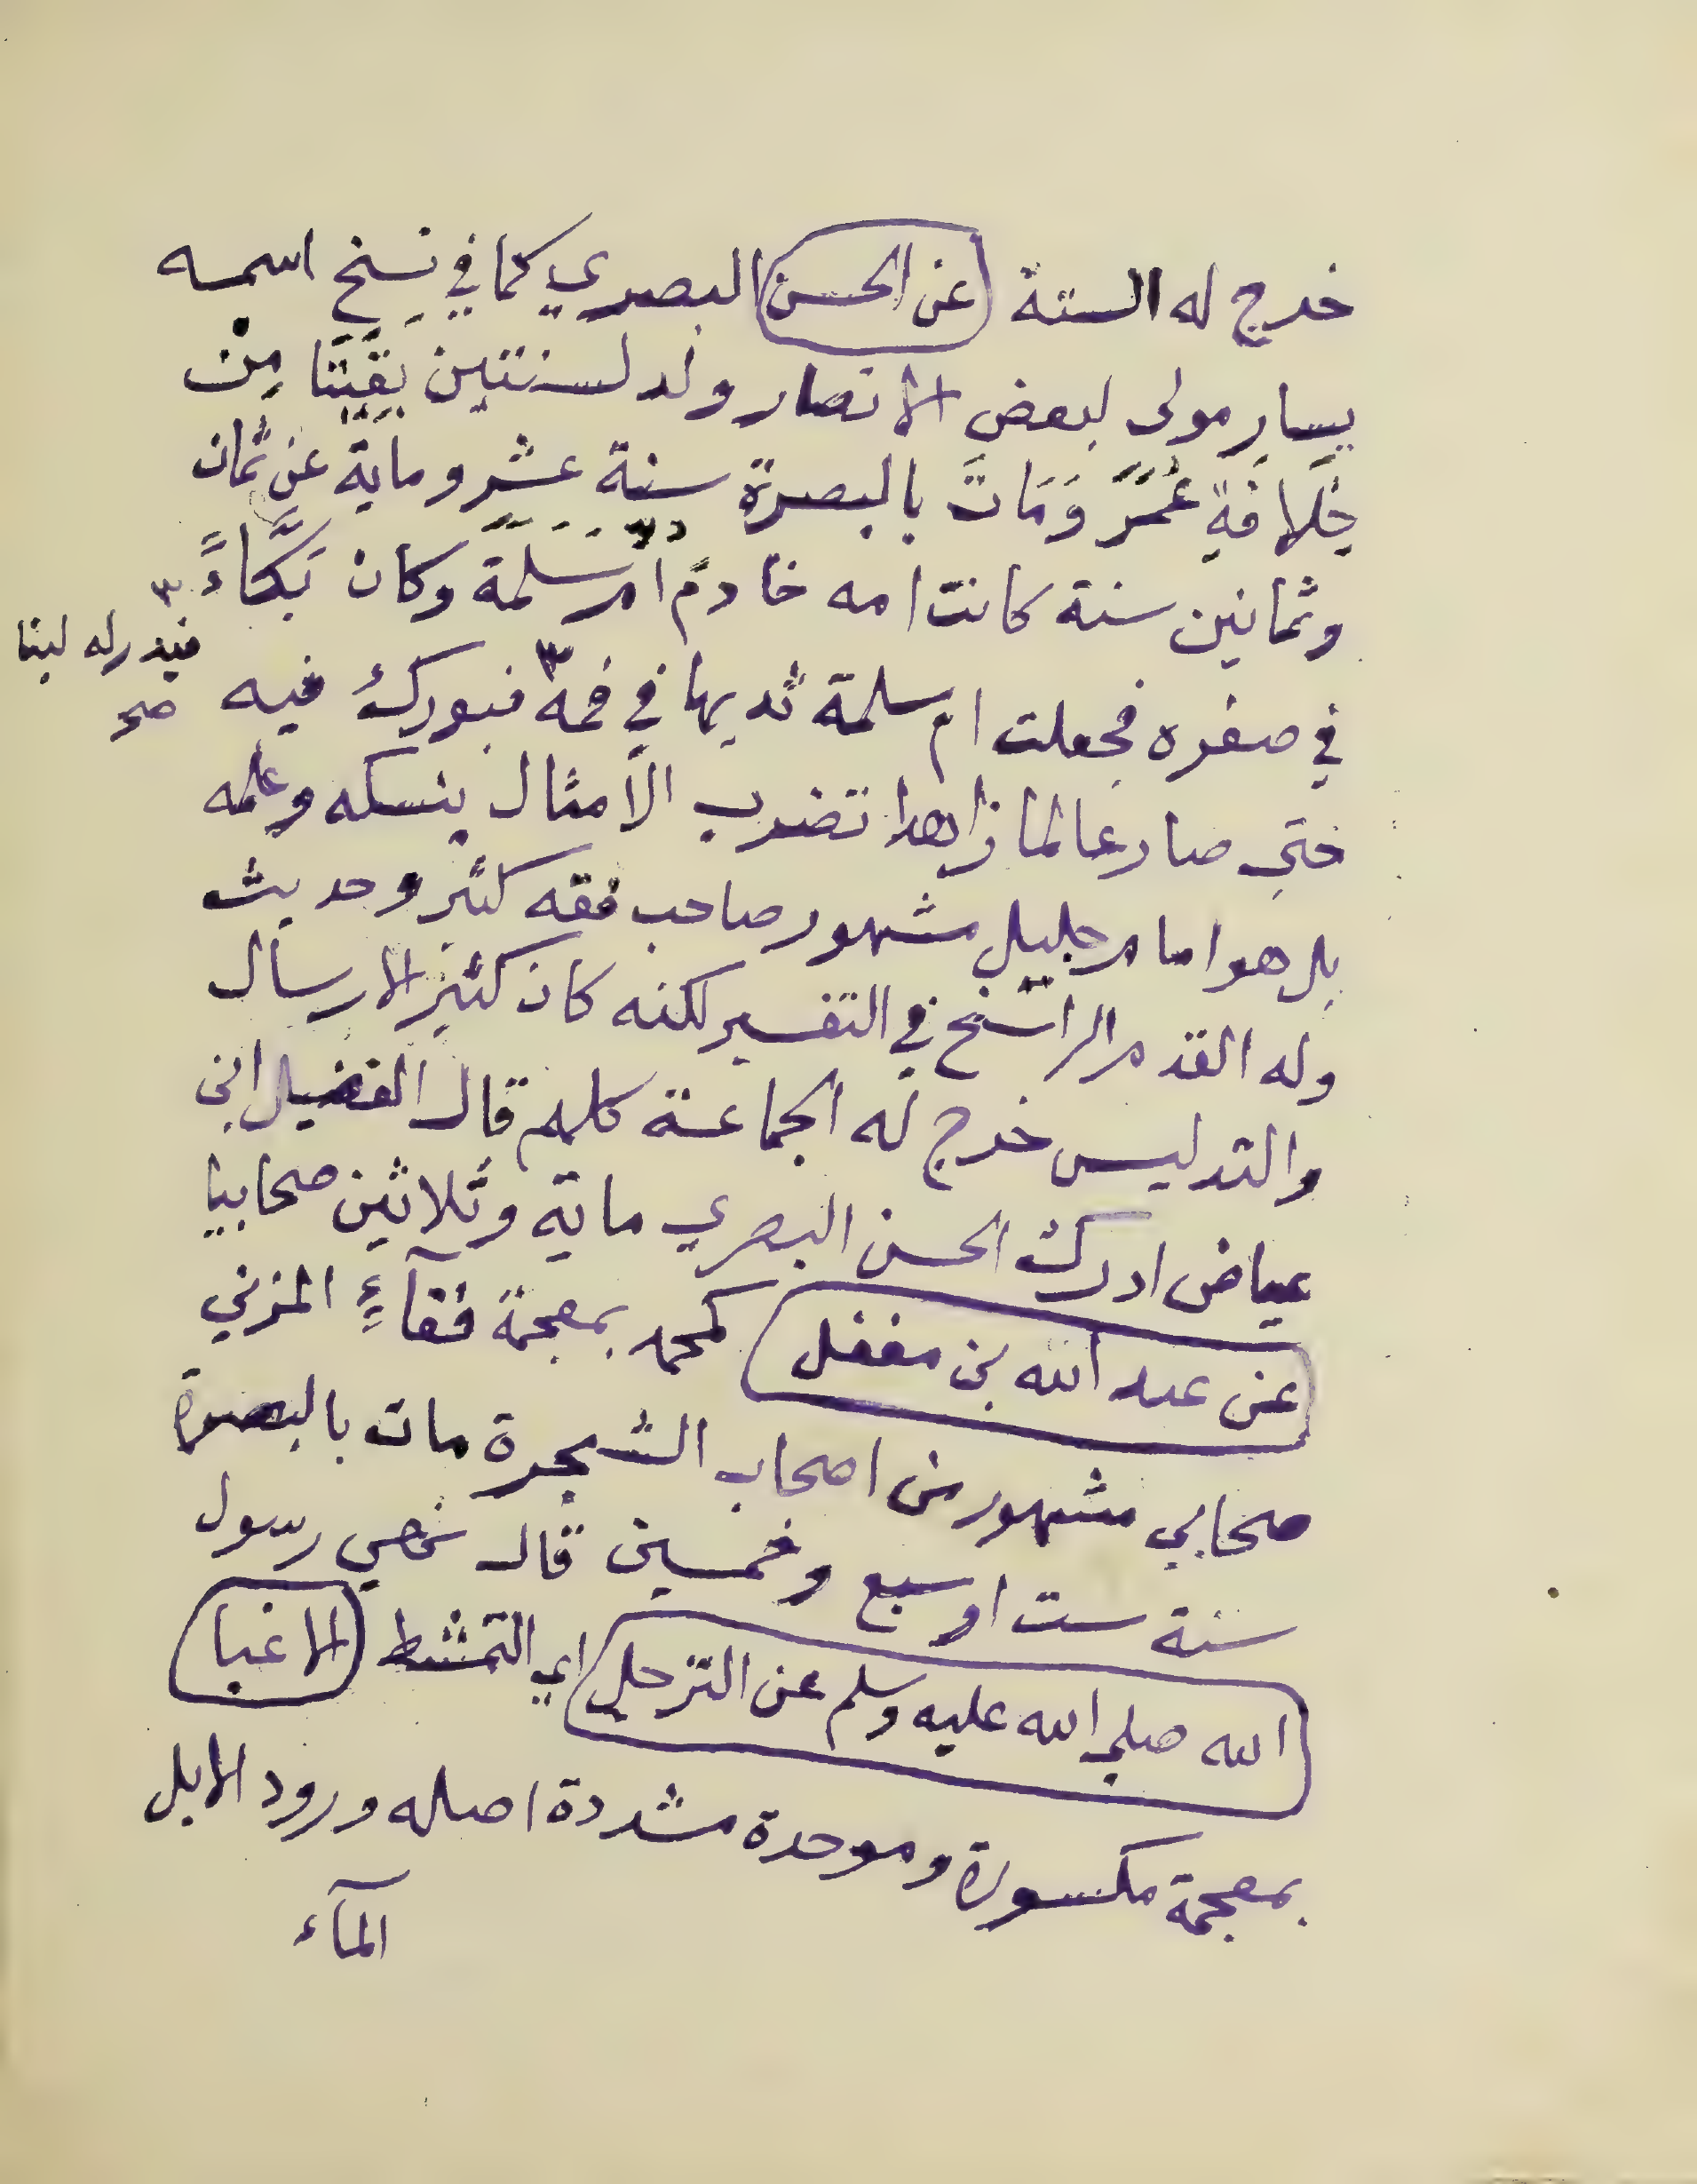 خرج له الستة عن الحسن البصري كما في نسخ اسمه
يسار مولى لبعض الانصار ولد لسنتين بقيتا من
خلافة عمر ومات بالبصرة سنة عشر وماية عن ثمان
وثمانين سنة كانت امه خادم ام سلمة وكان بكاء
في صغره فجعلت ام سلمة ثديها في فمه ٣ فبورك فيه
٣ فيدر له لبنا
صح
حتى صار عالما زاهدا تضرب الامثال بنسكه وعلمه
بل هو امام جليل مشهور صاحب فقه كثير وحديث
وله القدم الراسخ في التفسير لكنه كان كثير الارسال
والتدليس خرج له الجماعة كلهم قال الفضيل ابن
عياض ادرك الحسن البصري ماية وثلاثين صحابيا
عن عبد الله بن مغفل كمحمد بمعجمة ففآء المزني
صحابي مشهور من اصحاب الشجرة مات بالبصرة
سنة ست او سبع وخمسين قال نهي رسول
الله صلى الله عليه وسلم عن الترجل اي التمشط الا غبا
بمعجمة مكسورة وموحدة مشددة اصله ورود الابل
المآء